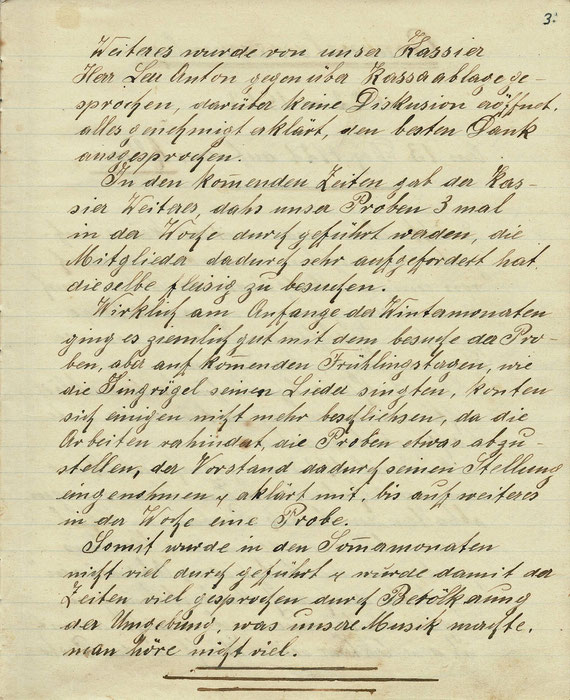 3.
Weiteres wurde von unser Kassier
Herr Leu Anton gegenüber Kassaablage ge-
sprochen, darüber keine Diskusion eröffnet,
alles genehmigt erklärt, den besten Dank
ausgesprochen.
In den kom̅enden Zeiten gab der Kas-
sier Weiteres, dahs unser Proben 3 mal
in der Woche durch geführt werden, die
Mitglieder dadurch sehr aufgefordert hat
dieselbe fleisig zu besuchen.
Wirklich am Anfange der Wintermonaten
ging es ziemlich gut mit dem besuche der Pro-
ben, aber auf kom̅enden Frühlingstagen, wie
die Singvögel seinen Lieder singten, konten
sich einigen nicht mehr beschlichsen, da die
Arbeiten verhindert, die Proben etwas abzu-
stellen, der Vorstand dadurch seinen Stellung
eingenohmen & erklärt mit, bis auf weiteres
in der Woche eine Probe.
Somit wurde in den Som̅ermonaten
nicht viel durch geführt & wurde damit der
Zeiten viel gesprochen durch Bevölkerung
der Umgebung, was unsere Musik machte,
man höre nicht viel.